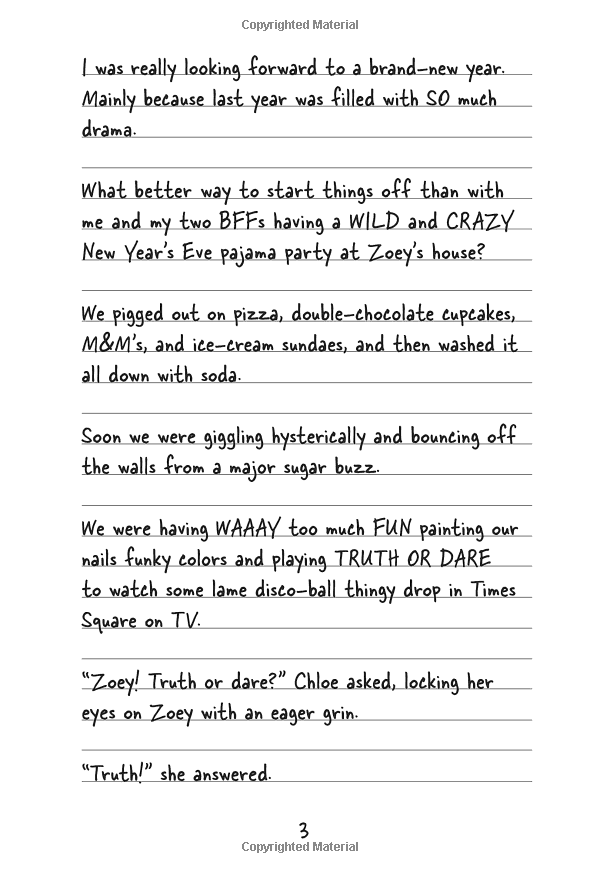 Copyrighted Material
I was really looking forward to a brand-new year.
Mainly because last year was filled with SO much
drama.
What better way to start things off than with
me and my two BFFs having a WILD and CRAZY
New Year's Eve pajama party at Zoey's house?
We pigged out on pizza, double-chocolate cupcakes,
M&M's, and ice-cream sundaes, and then washed it
all down with soda.
Soon we were giggling hysterically and bouncing off
the walls from a major sugar buzz.
We were having WAAAY too much FUN painting our
nails funky colors and playing TRUTH OR DARE
to watch some lame disco-ball thingy drop in Times
Square on TV.
"Zoey! Truth or dare?" Chloe asked, locking her
eyes on Zoey with an eager grin.
"Truth!" she answered.
3
Copyrighted Material